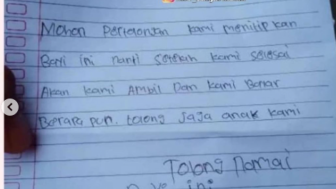 Mohon Pertolongan kami menitipkan
Bayi ini nanti setelah kami selesai
Akan kami Ambil Dan kami Bayar
Berapa pun. tolong jaga anak kami
Tolong namai
ini